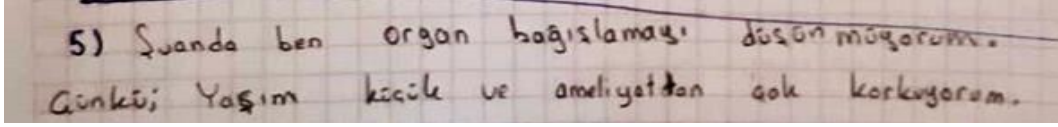 5) Şuanda ben organ bağışlamayı düşünmüyorum.
Çünkü; Yaşım küçük ve ameliyattan çok korkuyorum.